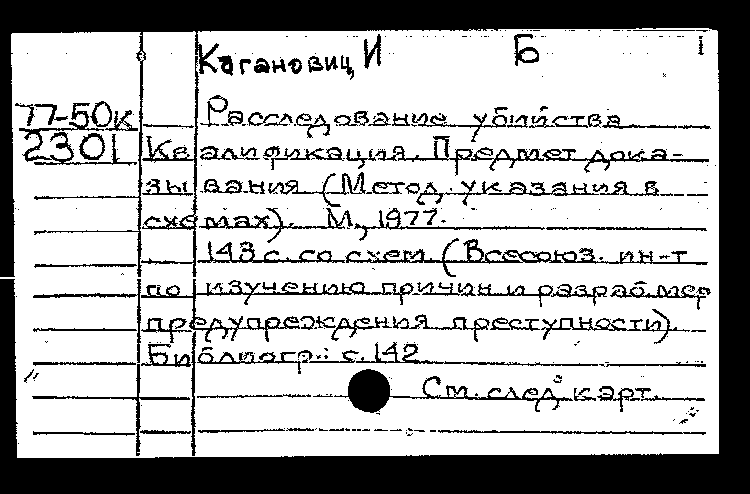 Каганович, И Б 1
77-50к Расследование убийства
2301 Квалификация. Предмет дока-
зывания (Метод. указания в
схемах). М., 1977.
143 с. со схем. (Всесоюз. ин-т
по изучению причин и разраб. мер
предупреждения преступности).
Библиогр.: с. 142.
См. след. карт.